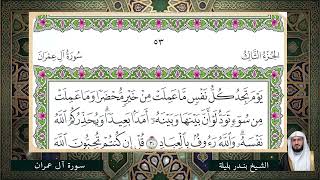 ٥٣
الجزء الثالث
سورة آل عمران
يَوْمَ تَجِدُ كُلُّ نَفْسٍ مَّا عَمِلَتْ مِنْ خَيْرٍ مُّحْضَرًا وَمَا عَمِلَتْ
مِن سُوٓءٍ تَوَدُّ لَوْ أَنَّ بَيْنَهَا وَبَيْنَهُۥٓ أَمَدًۢا بَعِيدًا ۗ وَيُحَذِّرُكُمُ ٱللَّهُ
نَفْسَهُۥ ۗ وَٱللَّهُ رَءُوفٌۢ بِٱلْعِبَادِ ٣٠ قُلْ إِن كُنتُمْ تُحِبُّونَ ٱللَّهَ
سورة آل عمران
الشيخ بندر بليلة